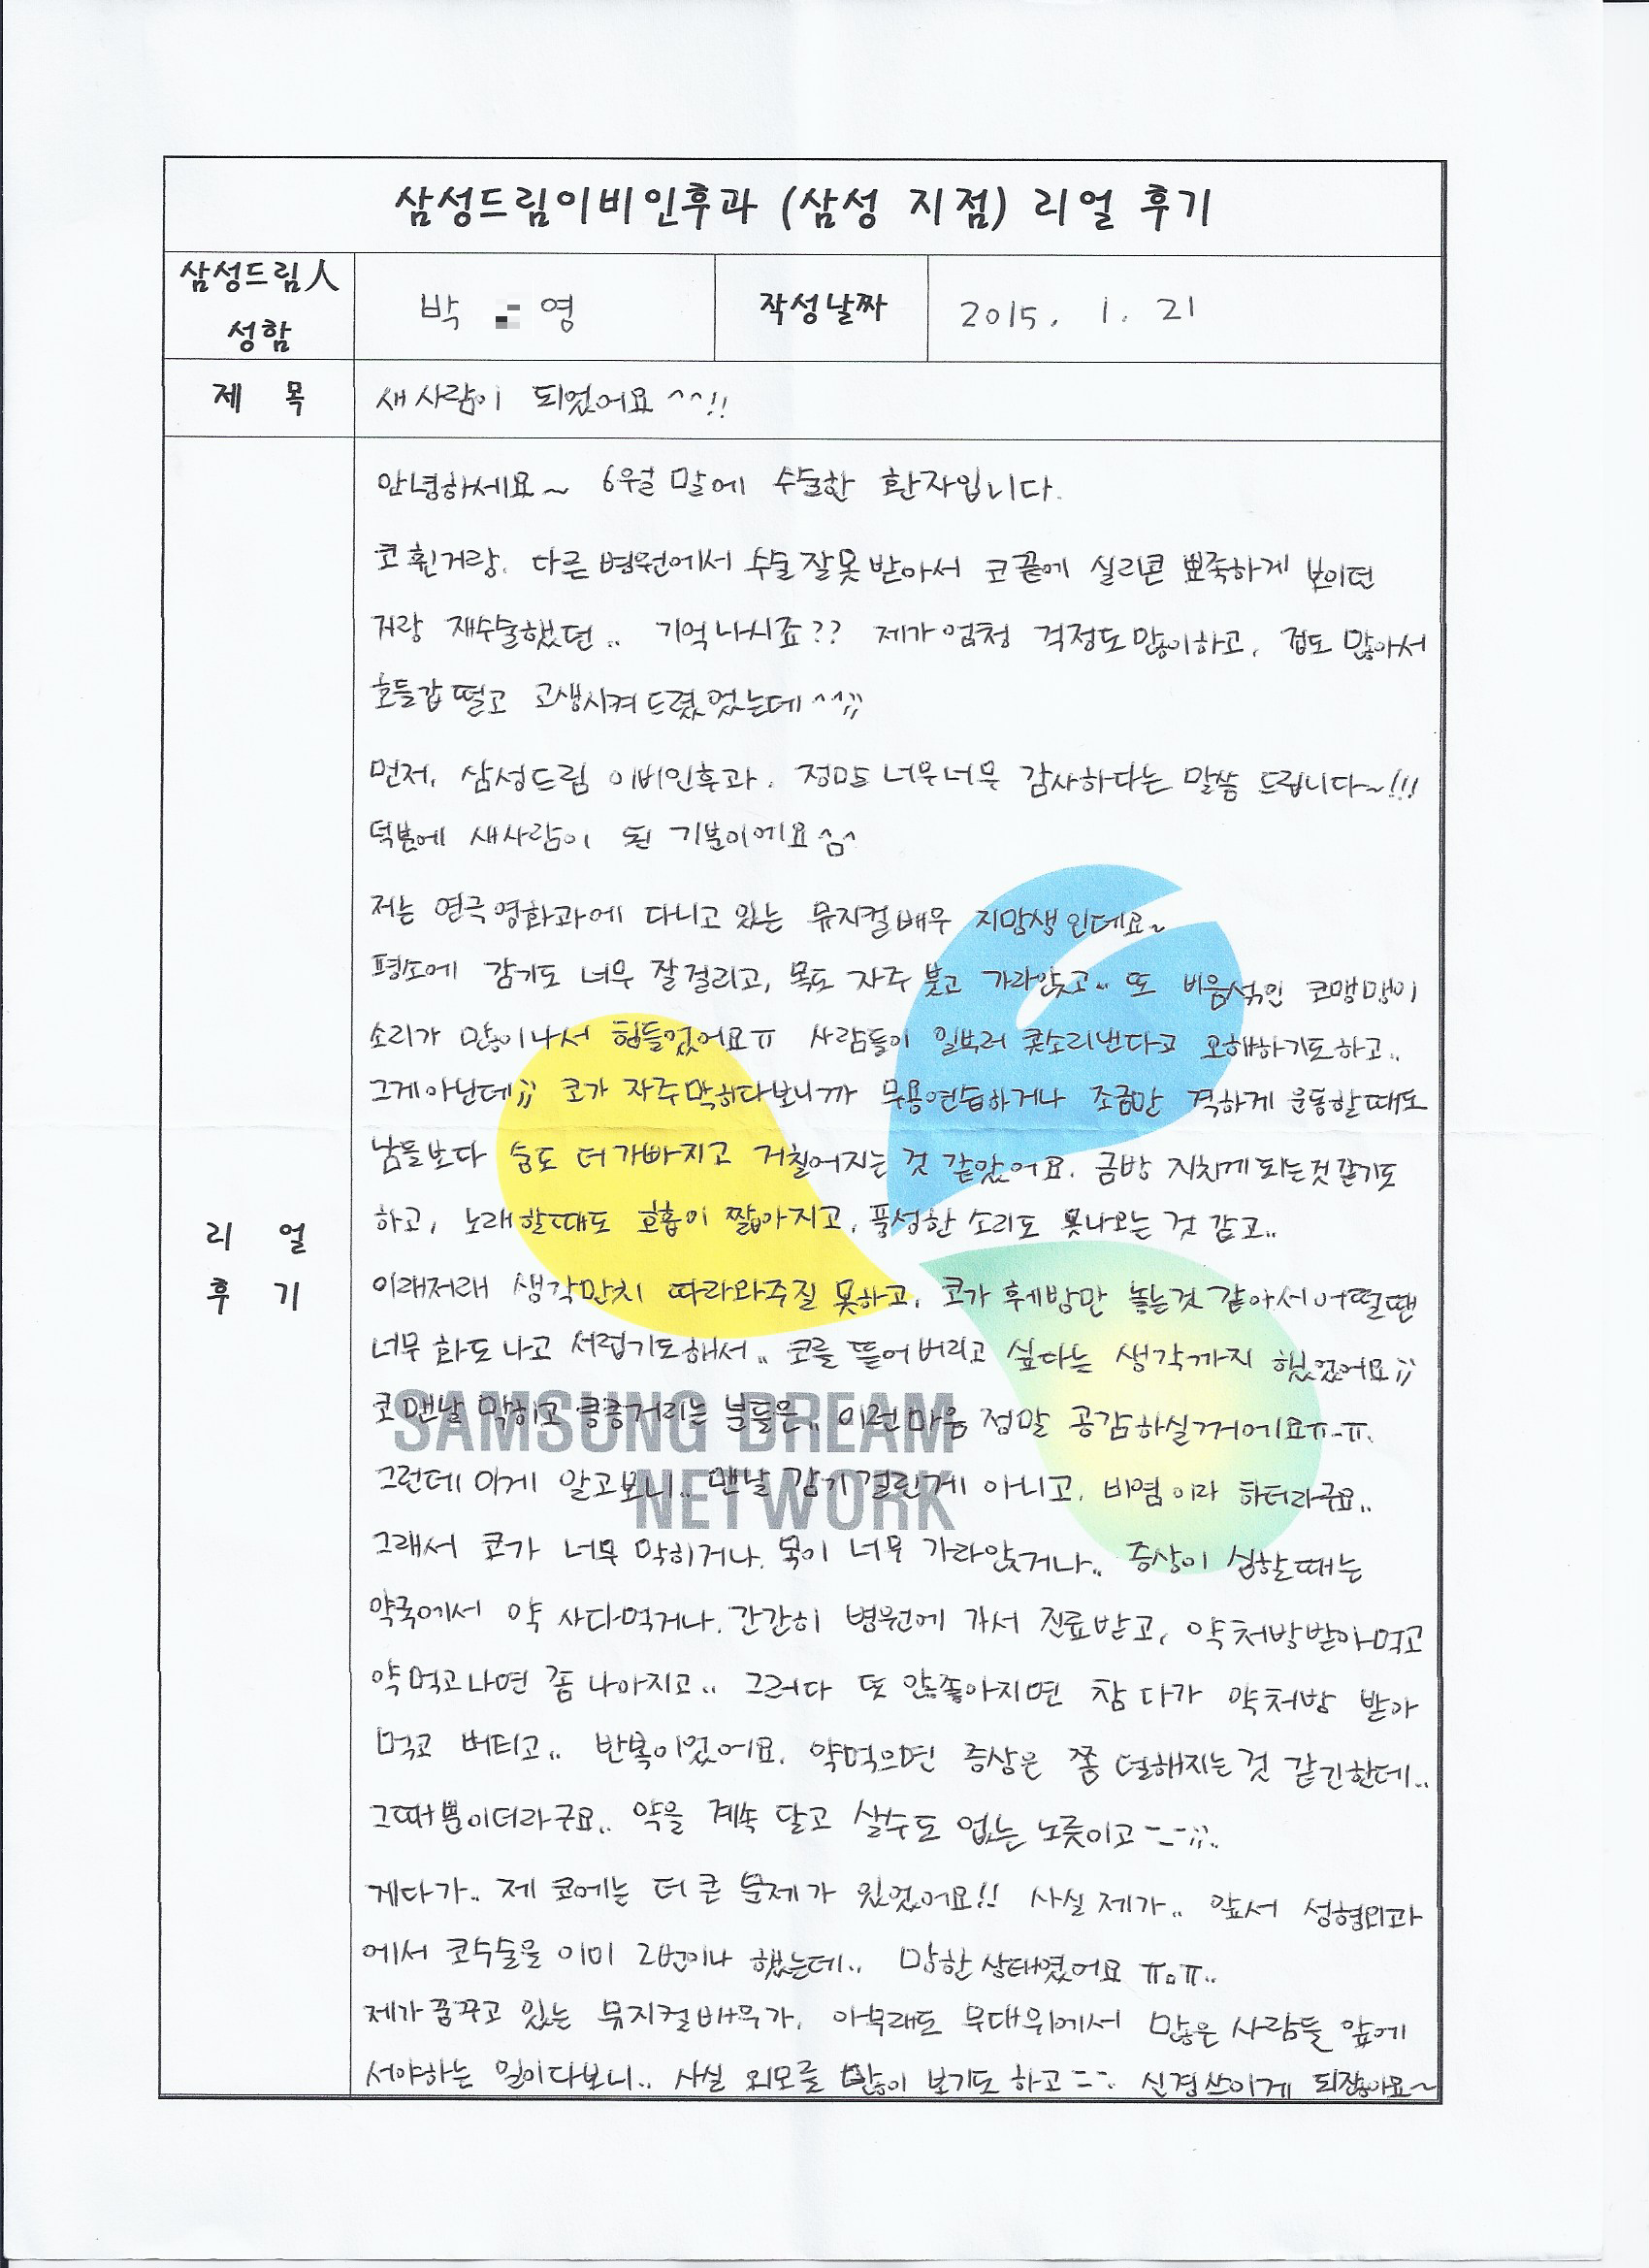 삼성드림이비인후과 (삼성 지점) 리얼 후기
삼성드림人
성함
박 영
작성날짜
2015. 1. 21
제 목
새사람이 되었어요 ^^!!
리 얼
후 기
안녕하세요~ 6월 말에 수술한 환자입니다.
코 휜거랑. 다른 병원에서 수술 잘못 받아서 코 끝에 실리콘 뾰족하게 보이던
거랑 재수술했던.. 기억나시죠?? 제가 엄청 걱정도 많이하고, 겁도 많아서
호들갑 떨고 고생시켜 드렸었는데^^;;
먼저, 삼성드림 이비인후과. 정말 너무너무 감사하다는 말씀 드립니다~!!!
덕분에 새사람이 된 기분이에요^^
저는 연극영화과에 다니고 있는 뮤지컬배우 지망생인데요~
평소에 감기도 너무 잘걸리고, 목도 자주 붓고 가라앉고.. 또 비음섞인 코맹맹이
소리가 많이나서 힘들었어요ㅠ 사람들이 일부러 콧소리낸다고 오해하기도하고..
그게아닌데;; 코가 자주막히다보니까 무용연습하거나 조금만 격하게 운동할때도
남들보다 숨도 더 가빠지고 거칠어지는 것 같았어요. 금방 지치게되는것같기도
하고, 노래할때도 호흡이 짧아지고, 풍성한 소리도 못나오는 것 같고..
이래저래 생각만치 따라와주질 못하고, 코가 훼방만 놓는것 같아서 어떨땐
너무 화도 나고 서럽기도해서.. 코를 뜯어버리고 싶다는 생각까지 했었어요;;
코 맨날 막히고 킁킁거리는 분들은.. 이런마음 정말 공감하실거에요ㅠ-ㅠ.
SAMSUNG DREAM
NETWORK
그런데 이게 알고보니.. 맨날 감기 걸린게 아니고, 비염이라 하더라구요..
그래서 코가 너무 막히거나. 목이 너무 가라앉거나.. 증상이 심할때는
약국에서 약 사다먹거나. 간간히 병원에 가서 진료받고, 약처방받아먹고
약먹고나면 좀 나아지고.. 그러다 또 안좋아지면 참다가 약처방 받아
먹고 버티고.. 반복이었어요. 약먹으면 증상은 쫌 덜해지는것 같긴한데..
그때뿐이더라구요.. 약을 계속 달고 살수도 없는 노릇이고--;;.
게다가.. 제 코에는 더 큰 문제가 있었어요!! 사실제가.. 앞서 성형외과
에서 코수술을 이미 2번이나 했는데.. 망한상태였어요 ㅠ.ㅠ..
제가꿈꾸고 있는 뮤지컬배우가, 아무래도 무대위에서 많은 사람들 앞에
서야하는 일이다보니.. 사실 외모를 많이 보기도 하고--. 신경쓰이게 되잖아요~